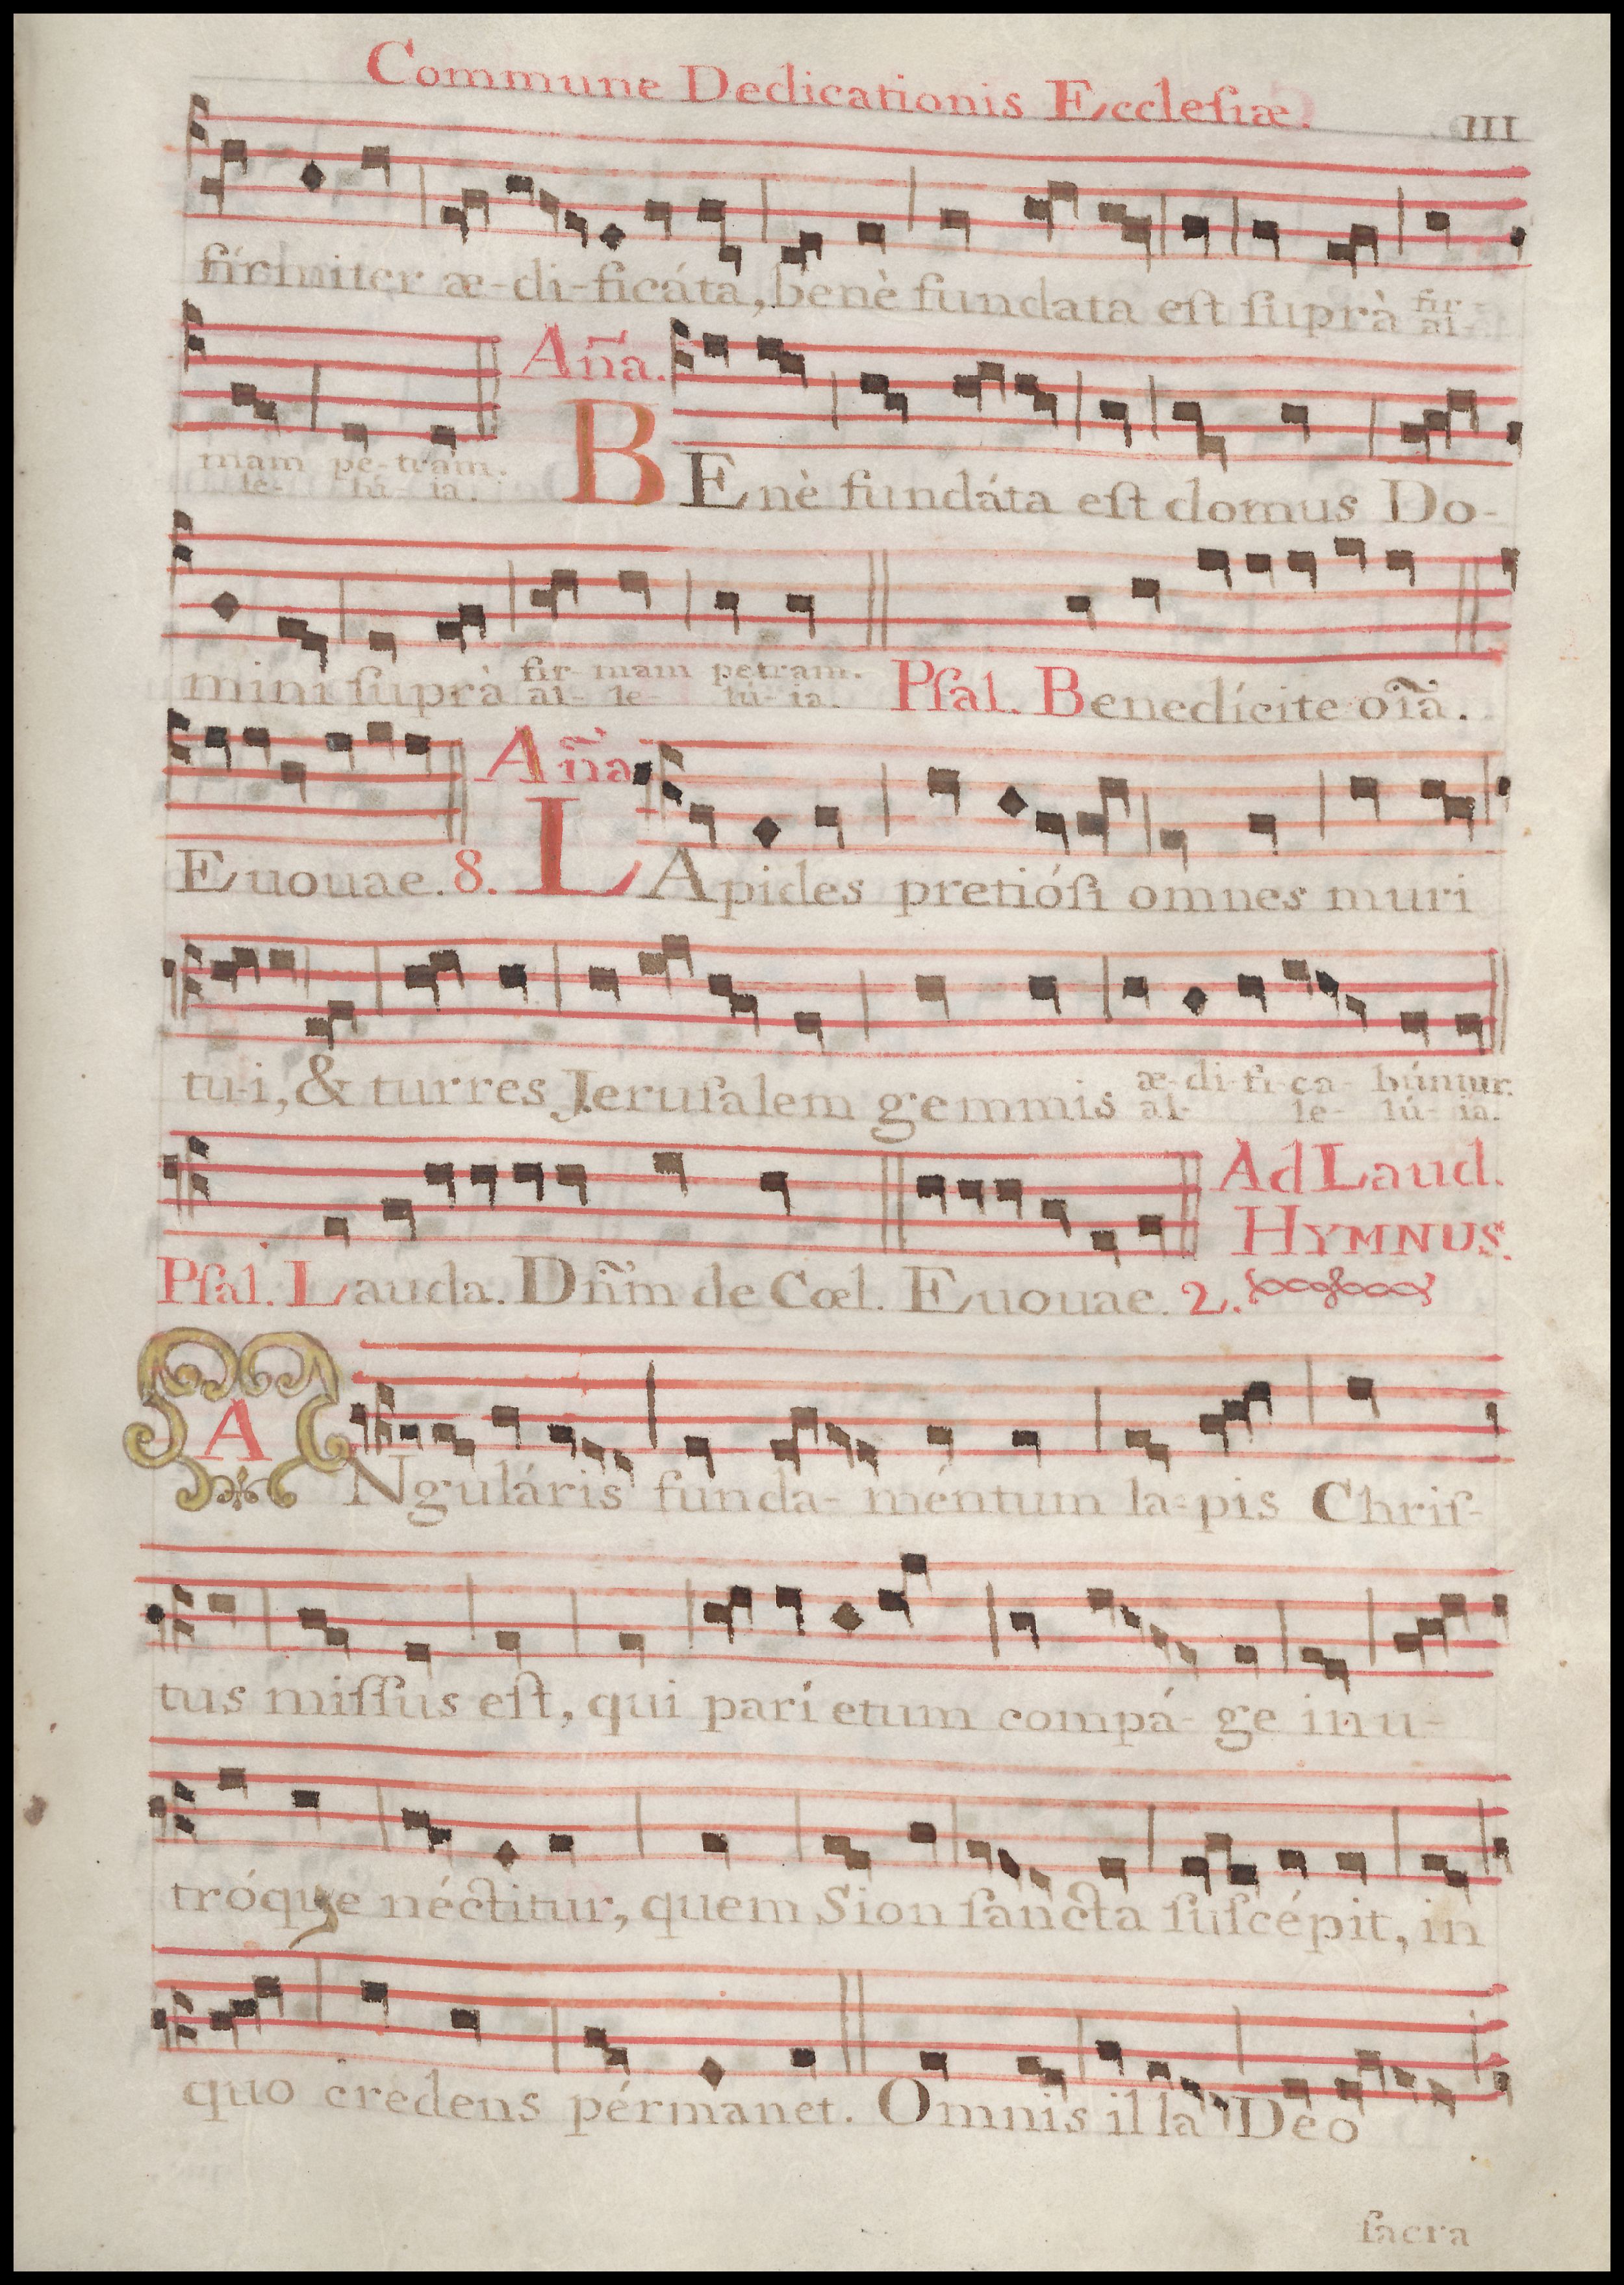 Commune Dedicationis Eccleſiæ.
III
fírmiter æ-di-ficáta, benè fundata eſt ſuprà fir-
al-
mam pe-tram.
le- lú- ia.
Ana.
BEnè fundáta eſt domus Do-
mini ſuprà fir- mam petram.
al- le- lú- ia.
Pſal. Benedícite oĩa.
Euouae. 8.
Aña
LApides pretióſi omnes muri
tu-i, & turres Jeruſalem gemmis æ-di-fi-ca- búntur.
al- le- lú- ia.
Pſal. Lauda. Dñm de Cœl. Euouae. 2.
Ad Laud.
HYMNUS.
ANguláris funda- méntum la-pis Chriſ-
tus miſſus eſt, qui parí etum compá- ge in u-
tróqȝe néctitur, quem Sion ſancta ſuſcépit, in
quo credens pérmanet. Omnis illa Deo
ſacra